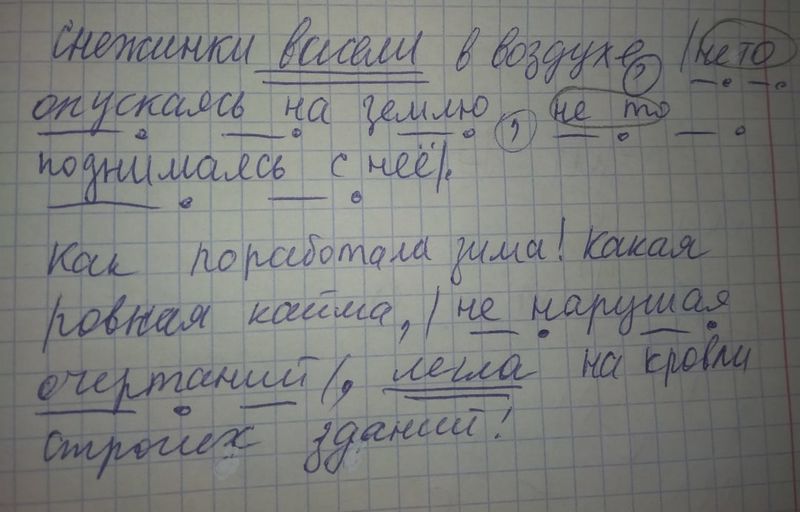 Снежинки висели в воздухе, /не то
опускаясь на землю, не то
поднимаясь с неё/.
Как поработала зима! Какая
ровная кайма, /не нарушая
очертаний/, легла на кровли
строгих зданий!